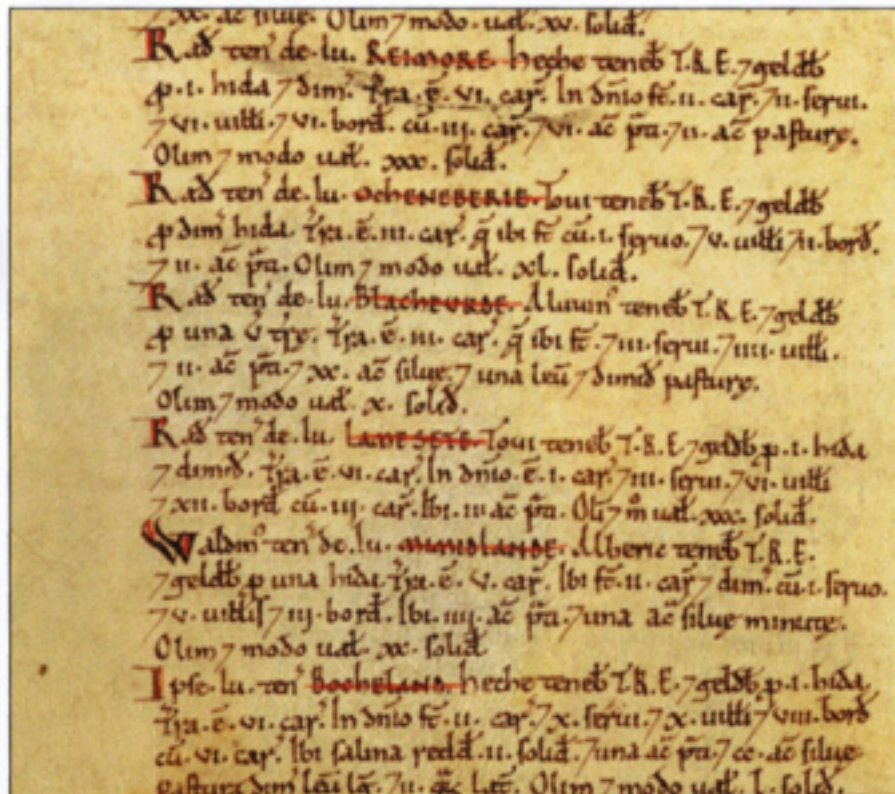 xx. ac̄ siluę. Olim ⁊ modo ual̄. xv. solid̄.
Rad̄ ten̄ de. Iu. REIMORE. heche teneb̄ T.R.E. ⁊ geldb̄
ꝑ. i. hida ⁊ dim̄. Tr̄a. ē. vi. car̄. In dn̄io st̄. ii. car̄. ⁊ ii. serui.
⁊ vi. uilłi. ⁊ vi. bord̄. cū. iii. car̄. ⁊ vi. ac̄ p̄ti. ⁊ ii. ac̄ pasturę.
Olim ⁊ modo ual̄. xxx. solid̄.
Rad̄ ten̄ de. Iu. OCHENEBERIE. Toui teneb̄ T.R.E. ⁊ geldb̄
ꝑ dim̄ hida Tr̄a. ē. iii. car̄. q̄ ibi st̄ cū. i. seruo. ⁊ v. uilłi ⁊ ii. bord̄.
⁊ ii. ac̄ p̄ti. Olim ⁊ modo ual̄. xl. solid̄.
Rad̄ ten̄ de. Iu. BLACHEVRDE. Aluuin᷒ teneb̄ T.R.E. ⁊ geldb̄
ꝑ una v̄ tr̄ę. Tr̄a. ē. iii. car̄. q̄ ibi st̄. ⁊ iii. serui. ⁊ iiii. uilłi.
⁊ ii. ac̄ p̄ti. ⁊ xx. ac̄ siluę. ⁊ una leū ⁊ dimid̄ pasturę.
Olim ⁊ modo ual̄. x. solid̄.
Rad̄ ten̄ de. Iu. LAMESETE. Toui teneb̄ T.R.E. ⁊ geldb̄ ꝑ. i. hida
⁊ dimid̄. Tr̄a. ē. vi. car̄. In dn̄io. ē. i. car̄. ⁊ iii. serui. ⁊ vi. uilłi
⁊ xii. bord̄ cū. iii. car̄. Ibi. iii ac̄ p̄ti. Oli ⁊ m̊ ual̄. xxx. solid̄.
Waldin᷒ ten̄ de. Iu. Alberic teneb̄ T.R.E.
⁊ geldb̄ ꝑ una hida Tr̄a. ē. v. car̄. Ibi st̄. ii. car̄ ⁊ dim̄. cū. i. seruo.
⁊ v. uilłis ⁊ iii. bord̄. Ibi. iiii. ac̄ p̄ti. ⁊ una ac̄ siluę minutę.
Olim ⁊ modo ual̄. xx. solid̄
Ipse. Iu. ten̄ BOCHELAND. heche teneb̄ T.R.E. ⁊ geldb̄ ꝑ. i. hida.
Tr̄a. ē. vi. car̄. In dn̄io st̄. ii. car̄. ⁊ x. serui. ⁊ x. uilłi ⁊ viii. bord̄
cū. vi. car̄. Ibi salina redd̄. ii. solid̄. ⁊ una ac̄ p̄ti. ⁊ cc. ac̄ siluę
pastura dim̄ leū lḡ. ⁊ ii. lat̄. Olim ⁊ modo ual̄. l. solid̄.